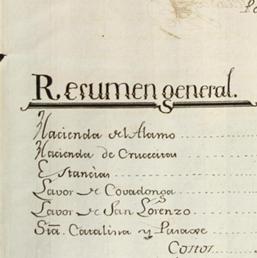 Resumen general.
Hacienda del Alamo
Hacienda de Crucecitas
Estancias
Lavor de Covadonga
Lavor de San Lorenzo
Sta. Catalina y Parage